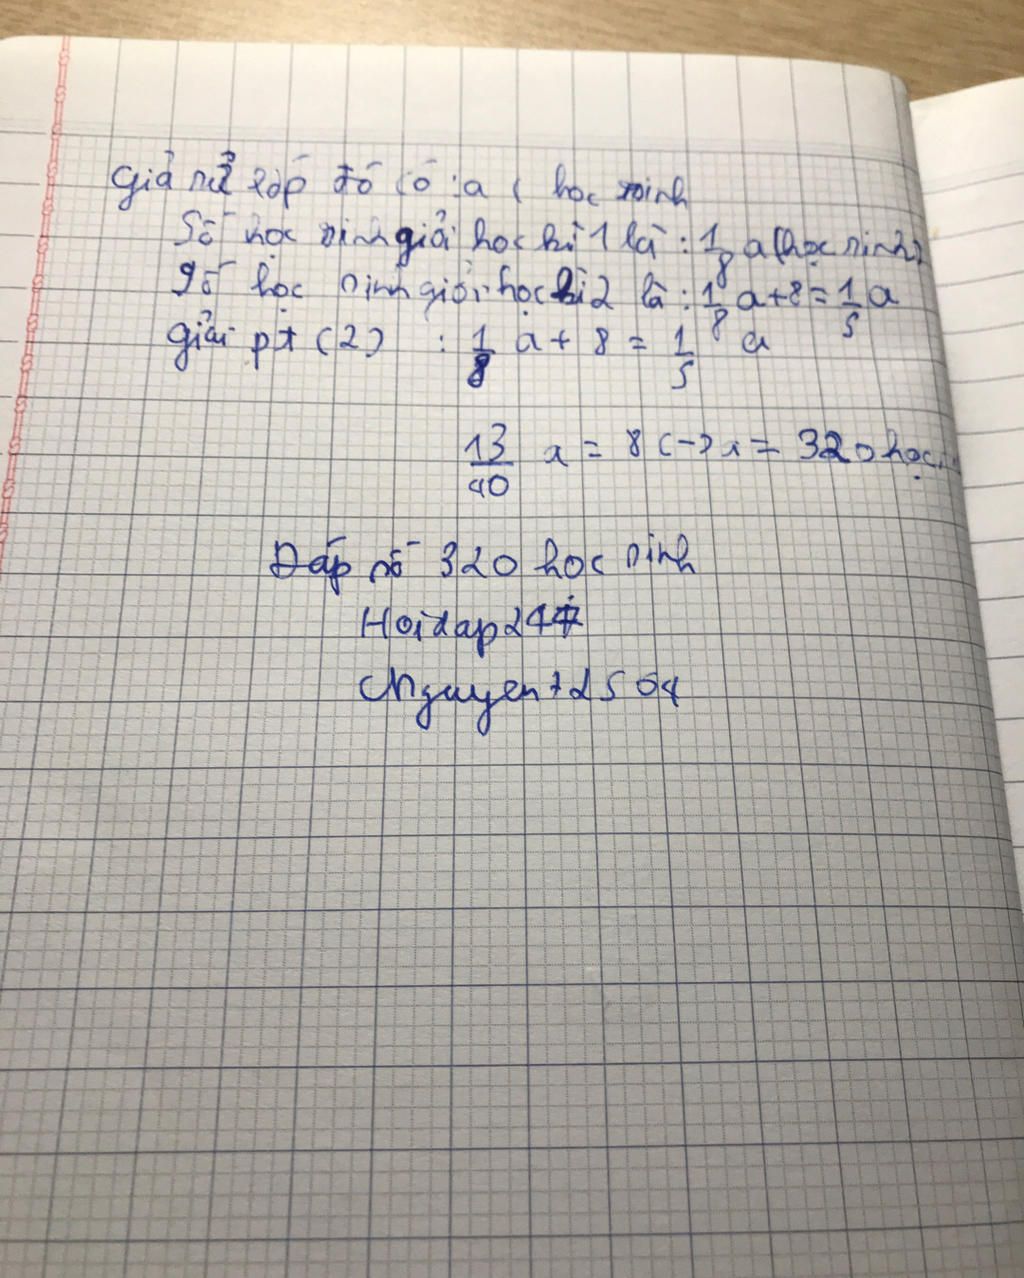 Giả sử lớp đó có : a ( học sinh
Số học sinh giỏi học kì 1 là : 1/8 a (học sinh)
Số học sinh giỏi học kì 2 là : 1/8 a + 8 = 1/5 a
giải pt (2) : 1/8 a + 8 = 1/5 a
13/40 a = 8 (-) a = 320 học
Đáp số 320 học sinh
Hoidap247
Nguyent2504